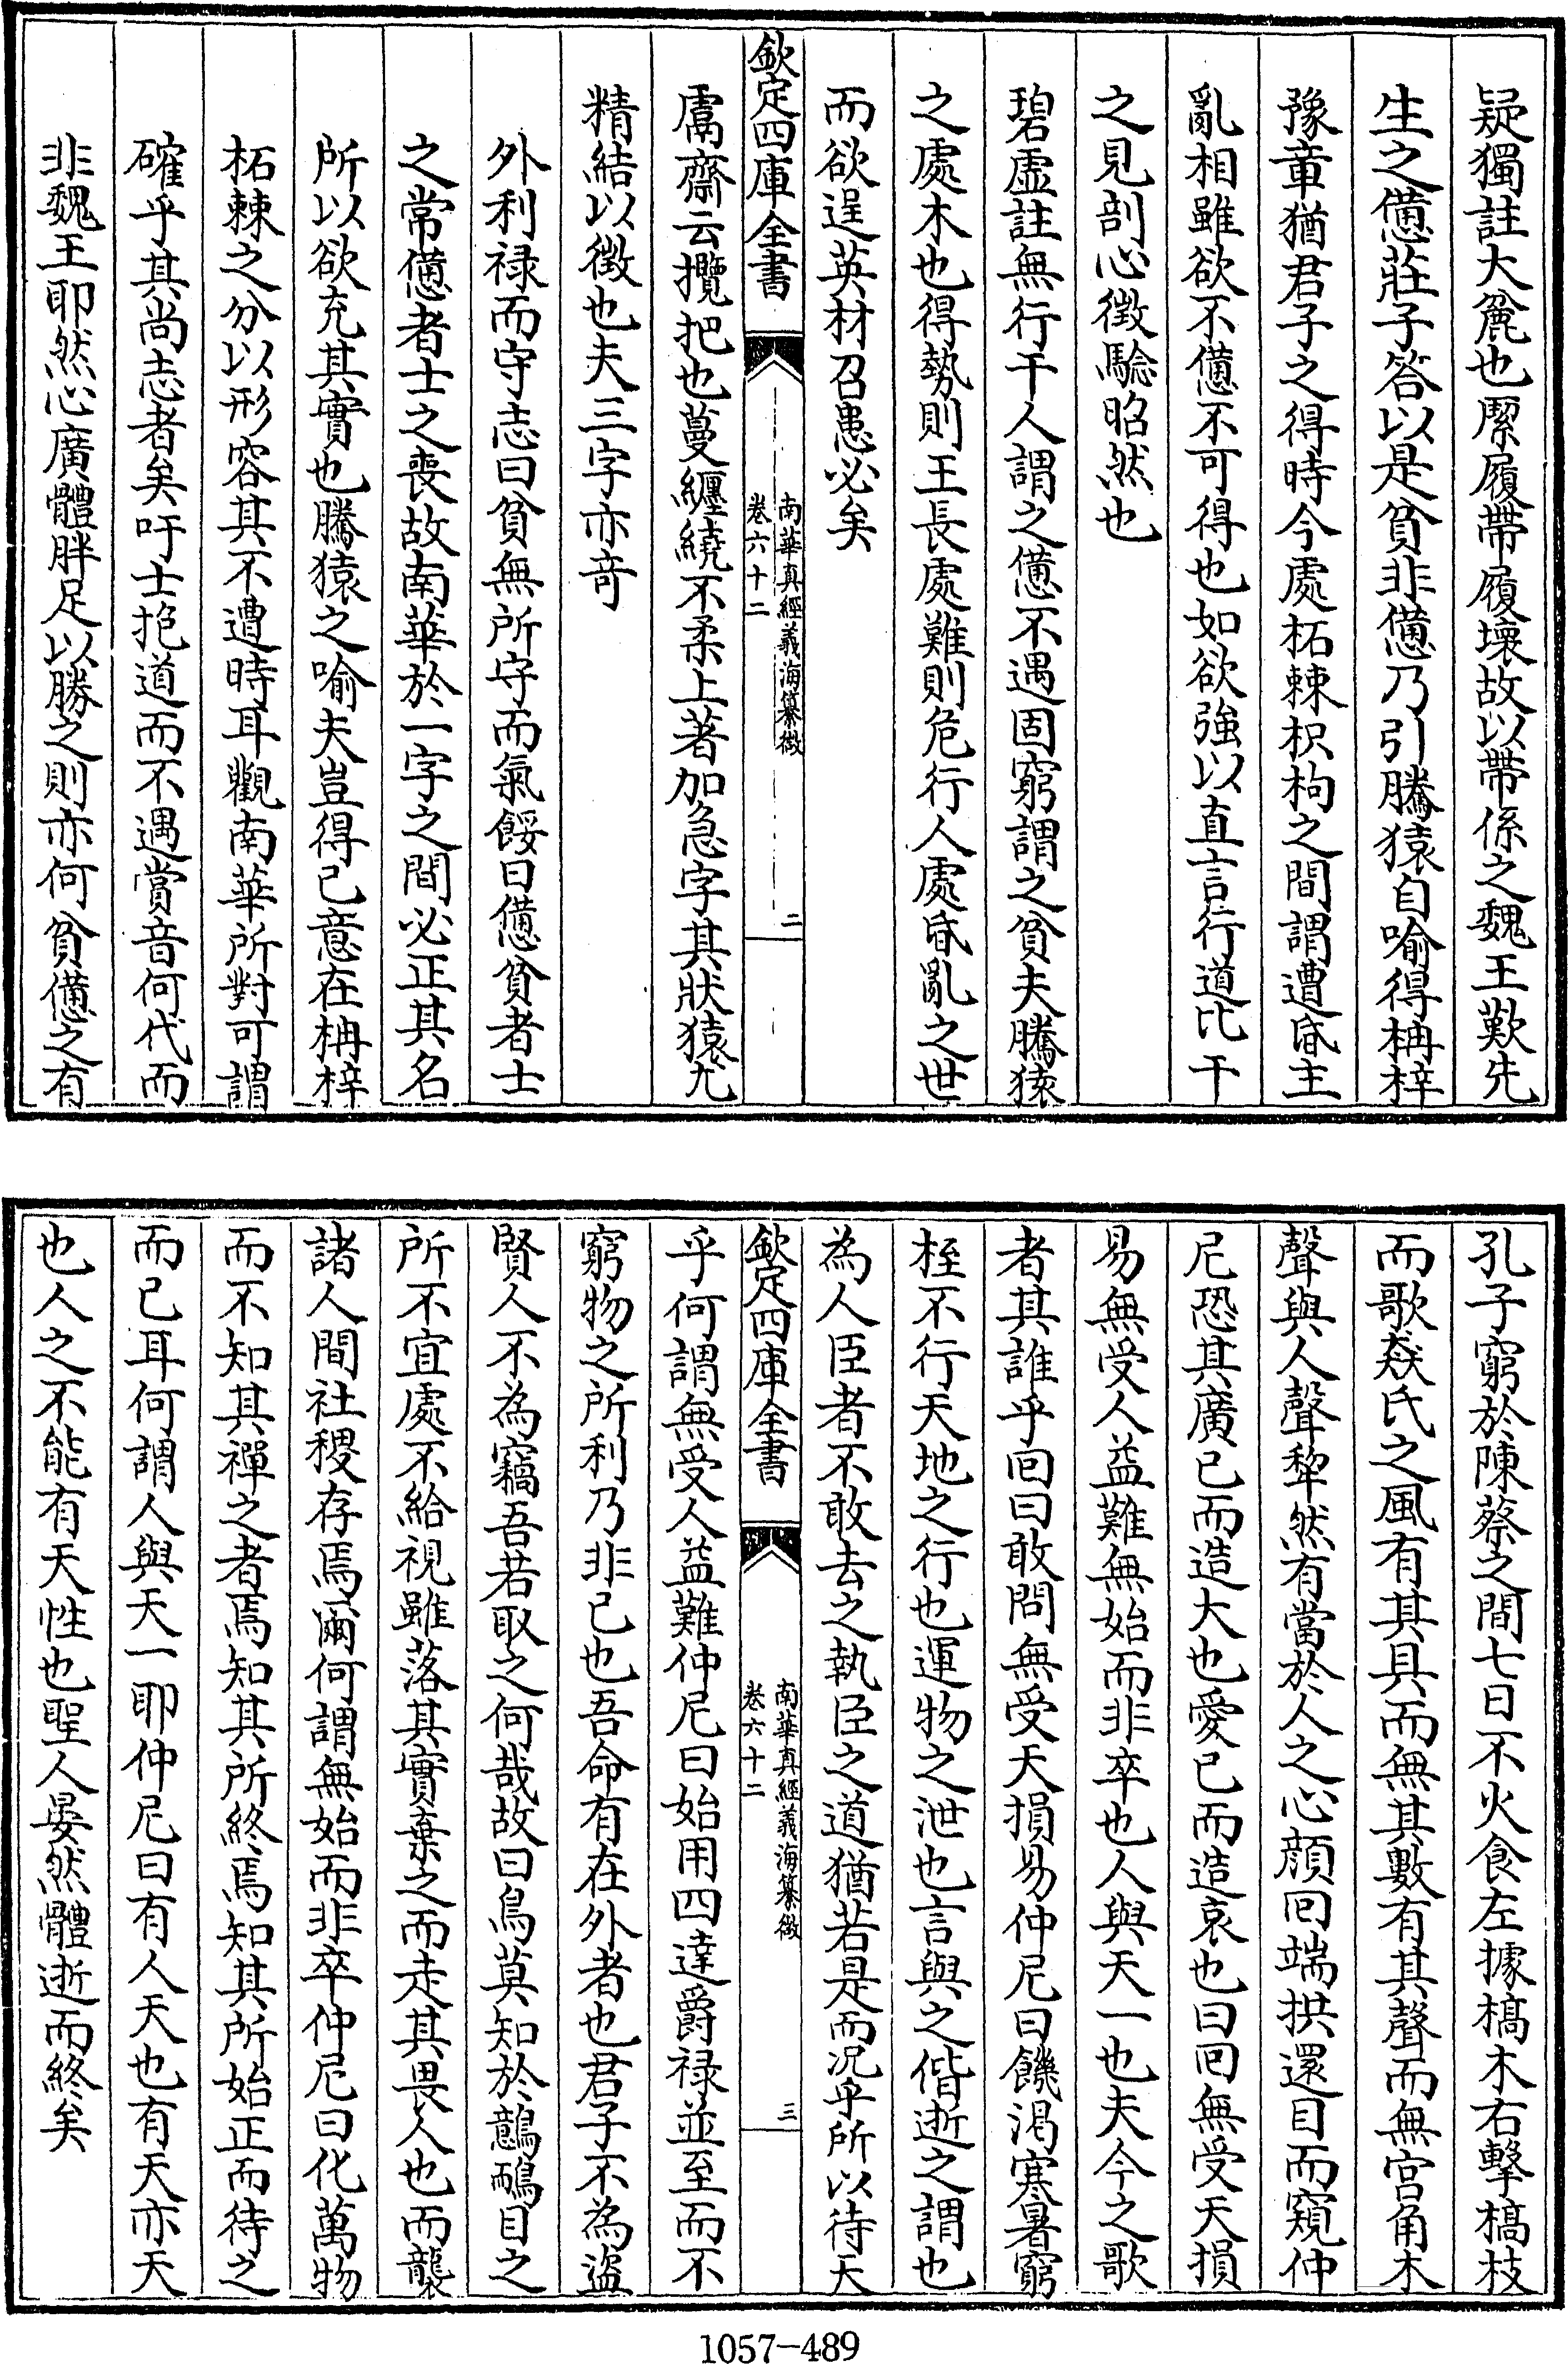 疑獨註大麄也緳履帶履壞故以帶係之魏王歎先
生之憊莊子答以是貧非憊乃引騰猿自喻得枏梓
豫章猶君子之得時今處柘棘枳枸之間謂遭昏主
亂相雖欲不憊不可得也如欲強以直言行道比干
之見剖心徵驗昭然也
碧虛註無行干人謂之憊不遇固窮謂之貧夫騰猿
之處木也得勢則王長處難則危行人處昏亂之世
而欲逞英材召患必矣
欽定四庫全書
南華真經義海纂微
卷六十二
二
鬳齋云攬把也蔓纏繞不柔上著加急字其狀猿尤
精結以徵也夫三字亦竒
外利禄而守志曰貧無所守而氣餒曰憊貧者士
之常憊者士之喪故南華於一字之間必正其名
所以欲充其實也騰猿之喻夫豈得已意在枏梓
柘棘之分以形容其不遭時耳觀南華所對可謂
確乎其尚志者矣吁士抱道而不遇賞音何代而
非魏王耶然心廣體胖足以勝之則亦何貧憊之有
孔子窮於陳蔡之間七日不火食左據槁木右擊槁枝
而歌猋氏之風有其具而無其數有其聲而無宫角木
聲與人聲犂然有當於人之心顔回端拱還目而窺仲
尼恐其廣已而造大也愛已而造哀也曰回無受天損
易無受人益難無始而非卒也人與天一也夫今之歌
者其誰乎回曰敢問無受天損易仲尼曰饑渇寒暑窮
桎不行天地之行也運物之泄也言與之偕逝之謂也
為人臣者不敢去之執臣之道猶若是而况乎所以待天
欽定四庫全書
南華真經義海纂微
卷六十二
三
乎何謂無受人益難仲尼曰始用四達爵禄並至而不
窮物之所利乃非已也吾命有在外者也君子不為盜
賢人不為竊吾若取之何哉故曰鳥莫知於鷾鴯目之
所不宜處不給視雖落其實棄之而走其畏人也而襲
諸人間社稷存焉爾何謂無始而非卒仲尼曰化萬物
而不知其禪之者焉知其所終焉知其所始正而待之
而已耳何謂人與天一耶仲尼曰有人天也有天亦天
也人之不能有天性也聖人晏然體逝而終矣
1057-489